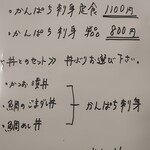 ・かんぱち刺身定食 1100円
・かんぱち刺身 単品 800円
丼とのセット≫ 丼よりお選び下さい。
・かつお漬丼
・鯛のごまだし丼
・鯛めし丼
かんぱち刺身